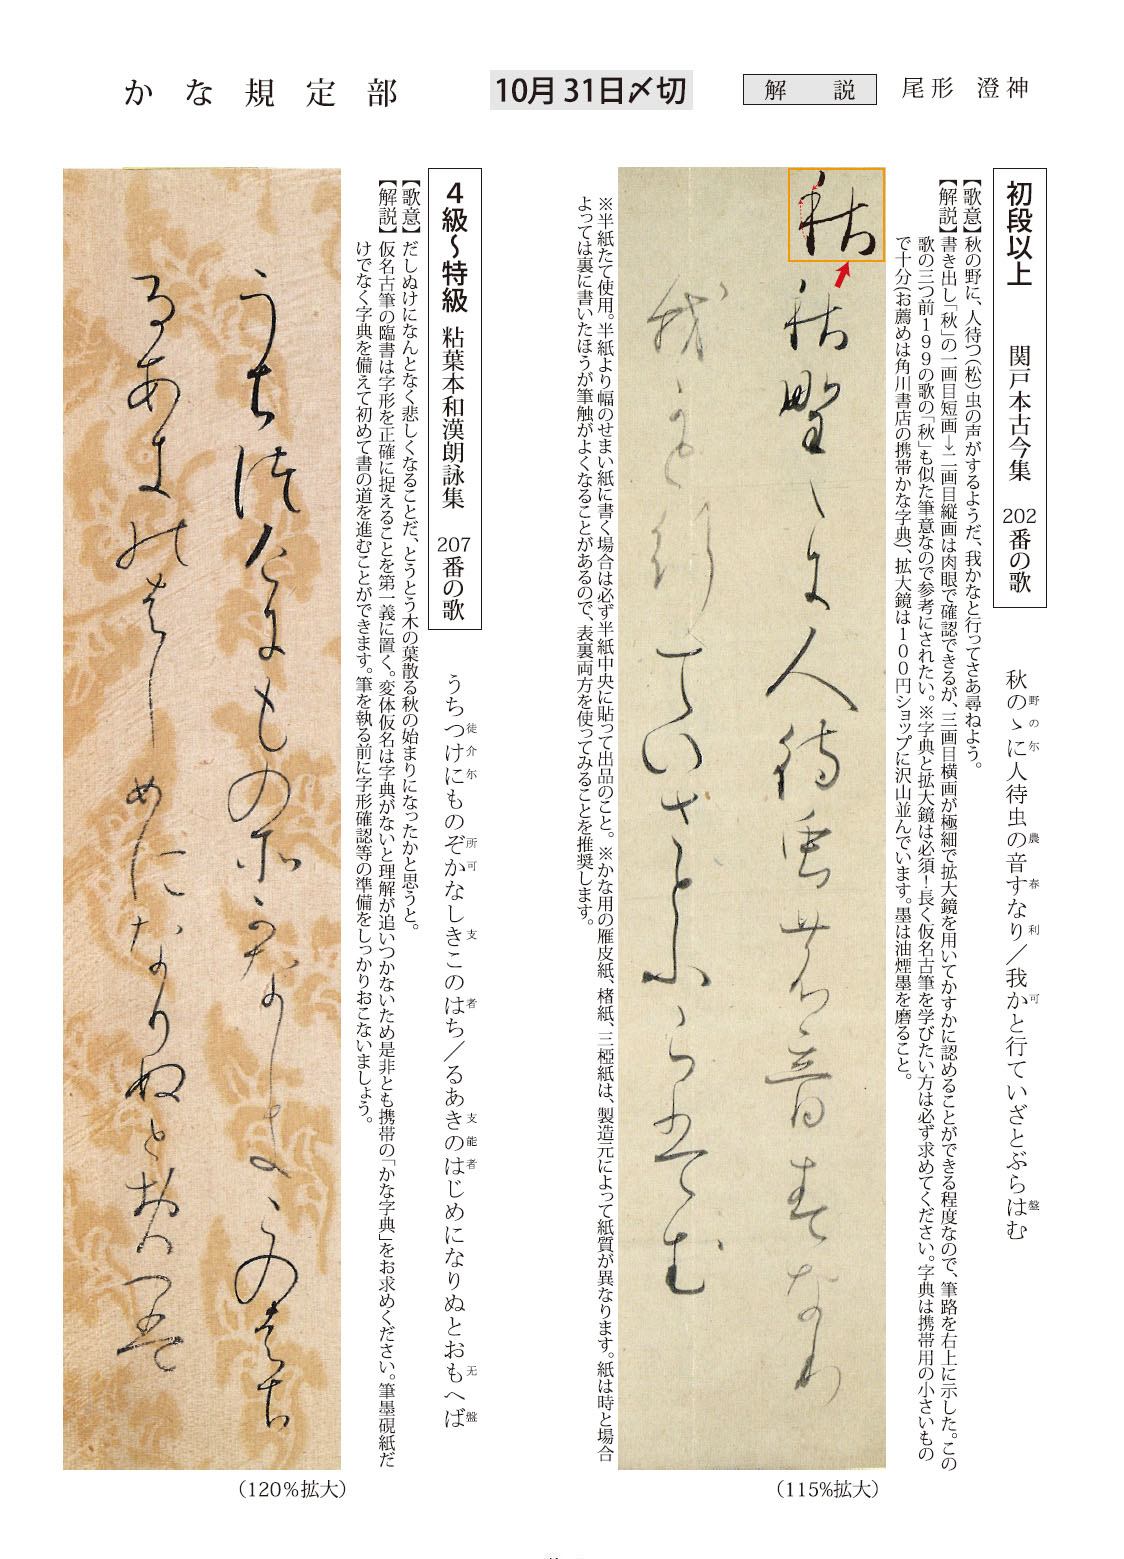 かな規定部
10月31日〆切
解説
尾形 澄神
初段以上 関戸本古今集 202番の歌
秋のゝに人待虫の音すなり／我かと行ていざとぶらはむ
野の 尓 農 春 利 可 盤
【歌意】秋の野に、人待つ（松）虫の声がするようだ、我かなと行ってさあ尋ねよう。
【解説】書き出し「秋」の一画目短画→二画目縦画は肉眼で確認できるが、三画目横画が極細で拡大鏡を用いてかすかに認めることができる程度なので、筆路を右上に示した。この
歌の三つ前１９９の歌の「秋」も似た筆意なので参考にされたい。※字典と拡大鏡は必須！長く仮名古筆を学びたい方は必ず求めてください。字典は携帯用の小さいもの
で十分（お薦めは角川書店の携帯かな字典）、拡大鏡は１００円ショップに沢山並んでいます。墨は油煙墨を磨ること。
秋
秋野ゝ尓人待虫農音春なり
我可と行ていさとふらはむ
（115％拡大）
※半紙たて使用。半紙より幅のせまい紙に書く場合は必ず半紙中央に貼って出品のこと。※かな用の雁皮紙、楮紙、三椏紙は、製造元によって紙質が異なります。紙は時と場合
よっては裏に書いたほうが筆触がよくなることがあるので、表裏両方を使ってみることを推奨します。
４級〜特級 粘葉本和漢朗詠集 207番の歌
うちつけにものぞかなしきこのはち／るあきのはじめになりぬとおもへば
徒 介 尓 所 可 支 者 支 能 者 无 盤
【歌意】だしぬけになんとなく悲しくなることだ、とうとう木の葉散る秋の始まりになったかと思うと。
【解説】仮名古筆の臨書は字形を正確に捉えることを第一義に置く。変体仮名は字典がないと理解が追いつかないため是非とも携帯の「かな字典」をお求めください。筆墨硯紙だ
けでなく字典を備えて初めて書の道を進むことができます。筆を執る前に字形確認等の準備をしっかりおこないましょう。
うち徒介尓もの所可なし支この者ち
るあ支能者しめになりぬとお无へ盤
（120％拡大）